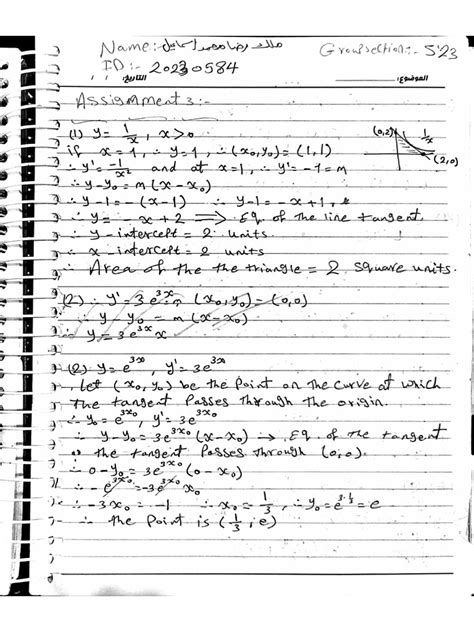 Name:- ملك رضا محمد إسماعيل
Group section:- S'23
ID:- 20230584
التاريخ:
الموضوع:
Assignment 3:-
(1) y = 1/x , x>0
(0,2)
1/x
(2,0)
if x = 1, ∴ y = 1, ∴ (x₀,y₀) = (1,1)
∴ y' = -1/x² and at x=1, ∴ y' = -1 = m
∴ y-y₀ = m(x-x₀)
∴ y-1 = -(x-1) ∴ y-1 = -x+1,
∴ y = -x+2 ⟹ Eq. of the line tangent.
∴ y-intercept = 2 units.
∴ x-intercept = 2 units
∴ Area of the the triangle = 2 square units.
(2) ∴ y' = 3e^{3x} = m (x₀,y₀) = (0,0)
∴ y-y₀ = m(x-x₀)
∴ y = 3e^{3x} x
(2) y = e^{3x} , y' = 3e^{3x}
, let (x₀, y₀) be the point on the curve at which
the tangent passes through the origin.
∴ y₀ = e^{3x₀} , y' = 3e^{3x₀}
∴ y-y₀ = 3e^{3x₀} (x-x₀) → Eq. of the tangent
∵ the tangent passes through (0,0).
∴ 0-y₀ = 3e^{3x₀} (0-x₀)
∴ -e^{3x₀} = -3e^{3x₀} x₀
∴ -3x₀ = -1 ∴ x₀ = 1/3 , ∴ y₀ = e^{3·1/3} = e
∴ the point is (1/3, e)